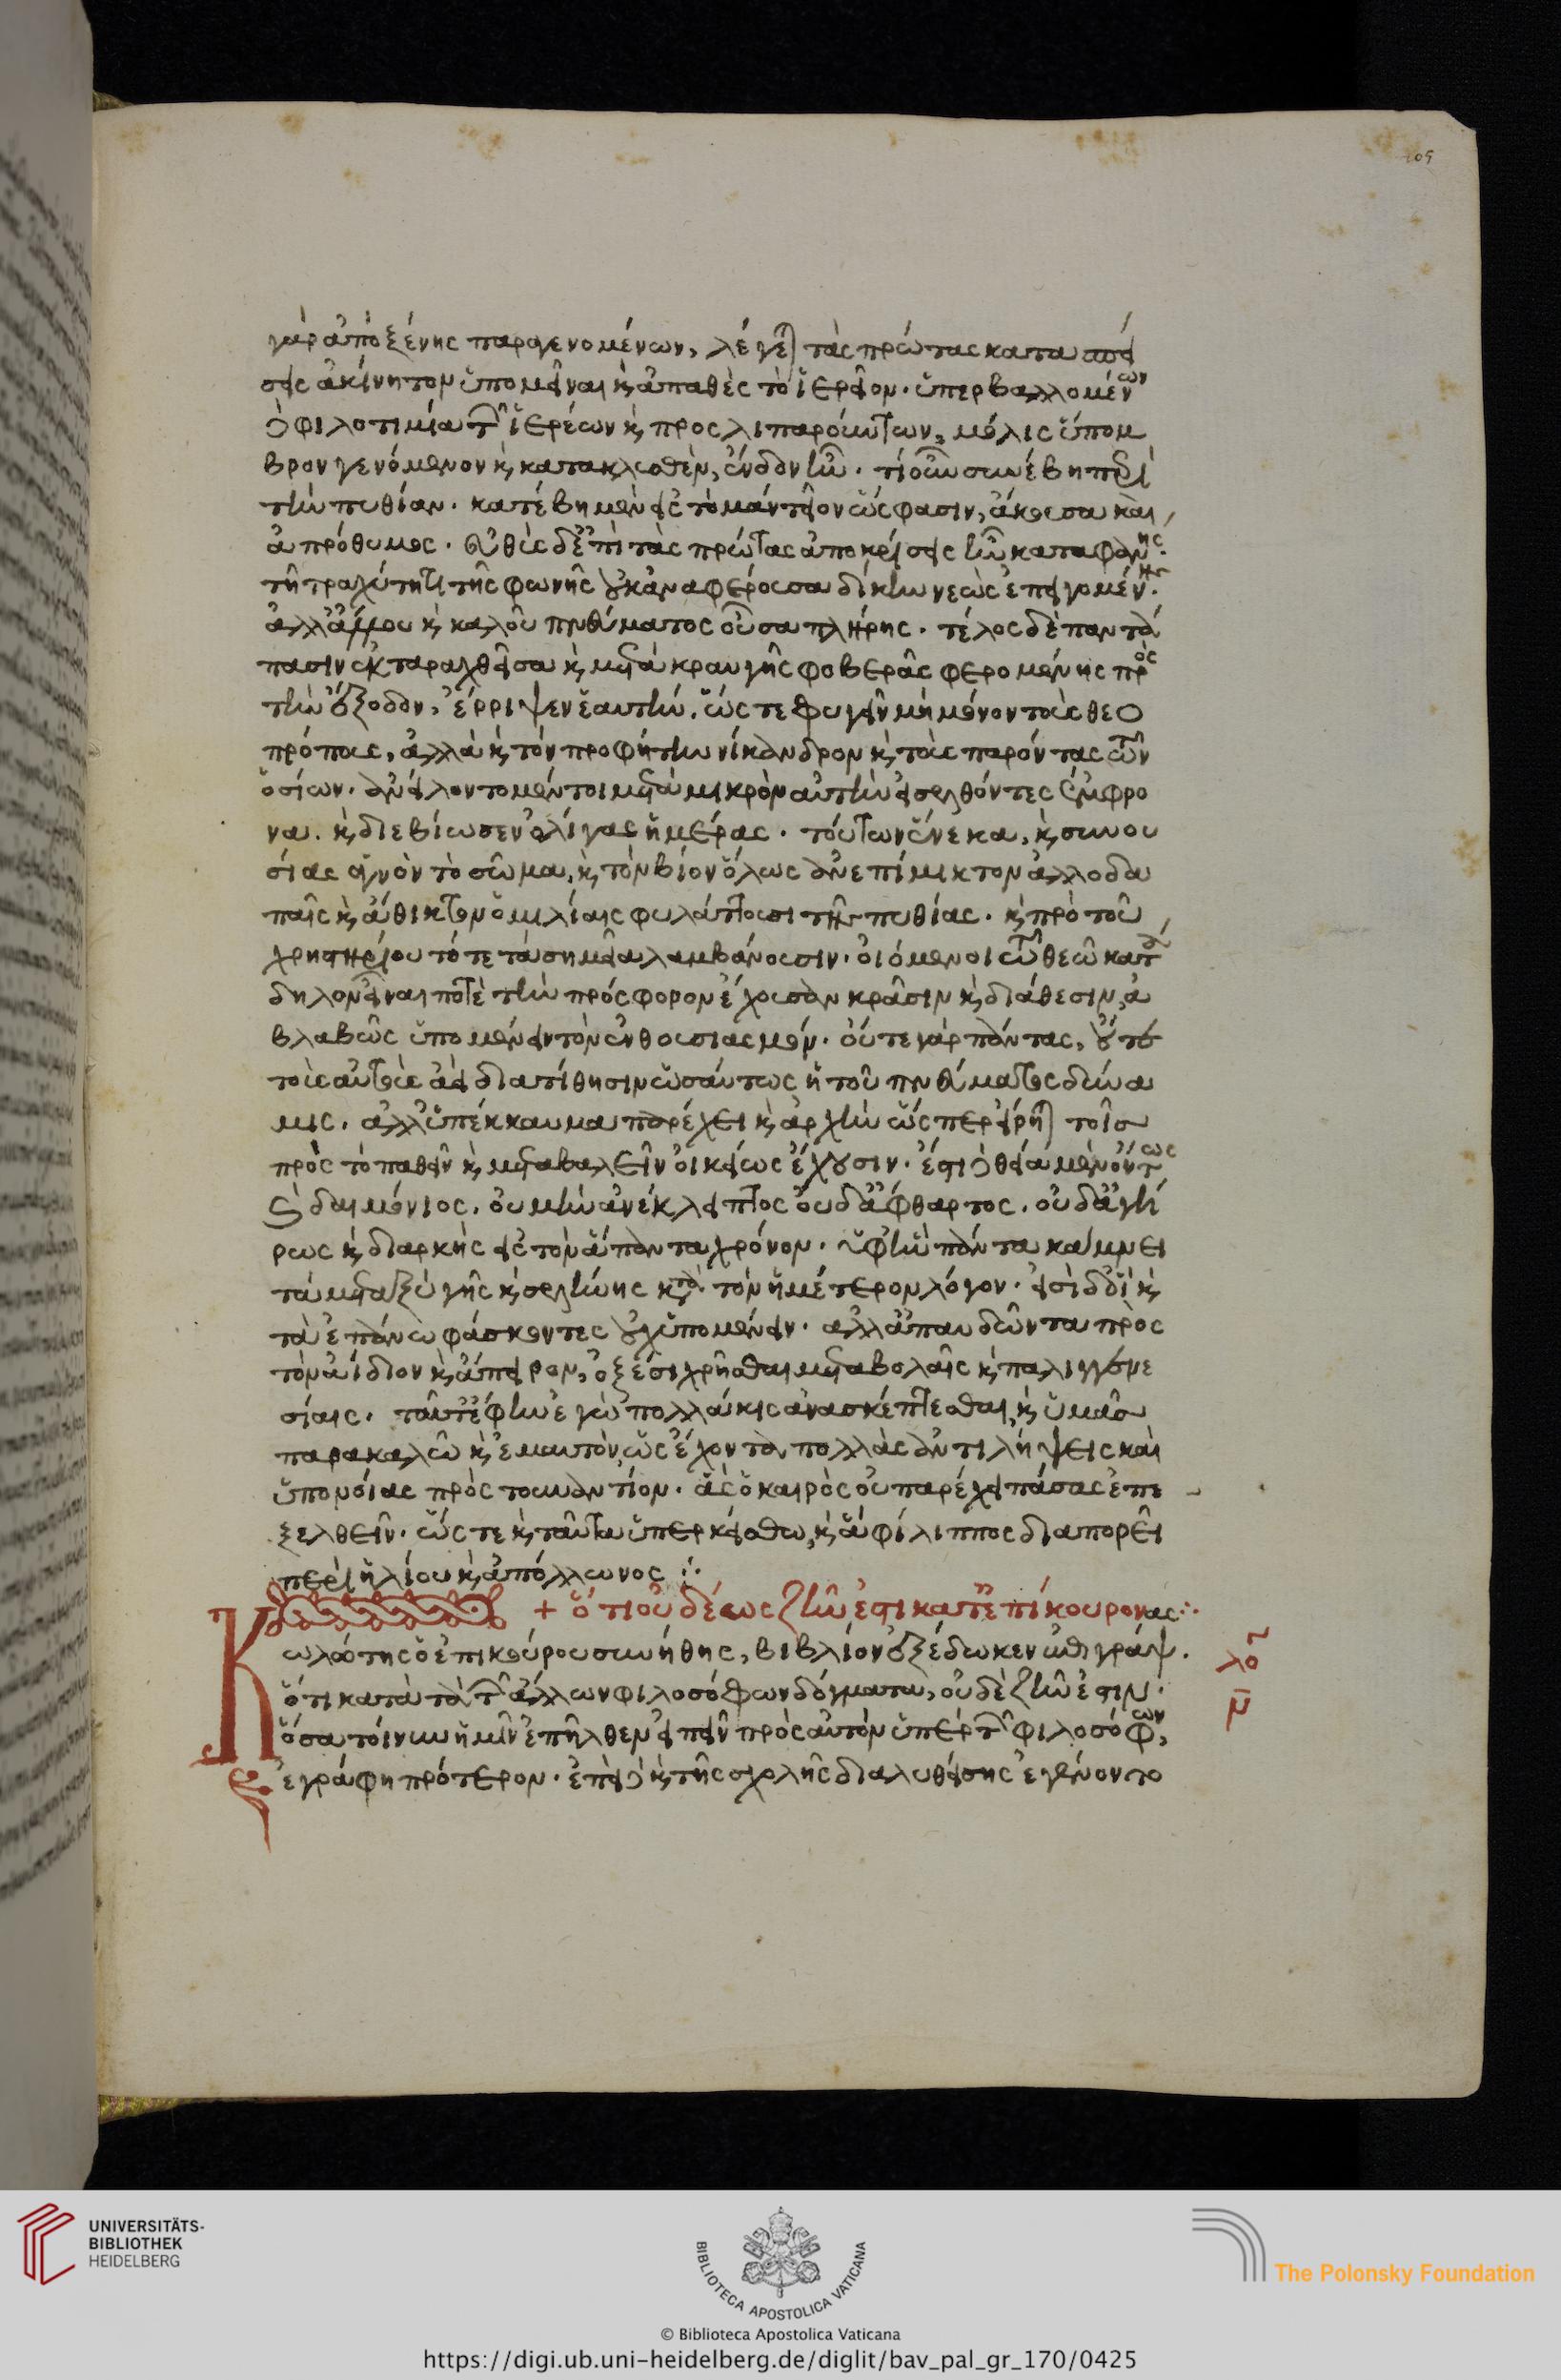 γὰρ ἀπὸ ξένης παραγενομένων, λέγεται τὰς πρώτας κατασπεί
σεις ἀκίνητον ὑπομεῖναι καὶ ἀπαθὲς τὸ ἱερεῖον. ὑπερβαλλομένων
δὲ φιλοτιμία τῶν ἱερέων καὶ προσλιπαρούντων, μόλις ὕπομ
βρον γενόμενον καὶ κατακλυσθὲν, ἔνδον ἦν. τί οὖν συνέβη περὶ
τὴν πυθίαν. κατέβη μὲν εἰς τὸ μαντεῖον ὥς φασιν, ἄκουσα καὶ
ἀπρόθυμος. εὐθὺς δὲ ἐπὶ τὰς πρώτας ἀποκρίσεις ἦν καταφανὴς.
τῇ τραχύτητι τῆς φωνῆς οὐκ ἀναφέρουσα δίκην νεὼς ἐπειγομένης.
καὶ καλοῦ πνεύματος οὖσα πλήρης. τέλος δὲ παντά
πασιν ἐκταραχθεῖσα καὶ μετὰ κραυγῆς φοβερᾶς φερομένης πρὸς
τὴν ἔξοδον, ἔρριψεν ἑαυτήν. ὥστε φυγεῖν μὴ μόνον τοὺς θεο
πρόπους, ἀλλὰ καὶ τὸν προφήτην νίκανδρον καὶ τοὺς παρόντας τῶν
ὁσίων. ἀνείλοντο μέντοι μετὰ μικρὸν αὐτὴν εἰσελθόντες ἔμφρο
να. καὶ διεβίωσεν ὀλίγας ἡμέρας. τούτων ἕνεκα, καὶ συνου
σίας ἁγνὸν τὸ σῶμα, καὶ τὸν βίον ὅλως ἀνεπίμικτον ἀλλοδα
παῖς καὶ ἄθικτον ὁμιλίαις φυλάττουσι τῆς πυθίας. καὶ πρὸ τοῦ
χρηστηρίου τότε τὰ σημεῖα λαμβάνουσιν. οἰόμενοι τῶ θεῶ κατά
δηλον εἶναι πότε τὴν πρόσφορον ἔχουσαν κρᾶσιν καὶ διάθεσιν, ἀ
βλαβῶς ὑπομένειν τὸν ἐνθουσιασμόν. οὔτε γὰρ πάντας, οὔτε
τοὺς αὐτοὺς ἀεὶ διατίθησιν ὡσαύτως ἡ τοῦ πνεύματος δύνα
μις. ἀλλ' ὑπέκκαυμα παρέχει καὶ ἀρχὴν ὥσπερ εἴρηται τοῖς
πρὸς τὸ παθεῖν καὶ μεταβαλεῖν οἰκείως ἔχουσιν. ἔστι δὲ θεία μὲν ὄντως
καὶ δαιμόνιος. οὐ μὴν ἀνέκλειπτος οὐδ' ἄφθαρτος. οὐδ' ἀγή
ρως καὶ διαρκὴς εἰς τὸν ἅπαντα χρόνον. ὑφ' ἧς πάντα κάμνει
τὰ μεταξὺ γῆς καὶ σελήνης κατὰ τὸν ἡμέτερον λόγον. εἰσὶ δ' οἳ καὶ
τὰ ἐπάνω φάσκοντες οὐχ ὑπομένειν. ἀλλ' ἀπαυδῶντα πρὸς
τὸν ἀίδιον καὶ ἄπειρον, ὀξέσι χρῆσθαι μεταβολαῖς καὶ παλιγγενε
σίαις. ταῦτ' ἔφην ἐγὼ πολλάκις ἀνασκέπτεσθαι, καὶ ὑμᾶς
παρακαλῶ καὶ ἐμαυτὸν, ὡς ἔχοντα πολλὰς ἀντιλήψεις καὶ
ὑπονοίας πρὸς τοὐναντίον. ἃς ὁ καιρὸς οὐ παρέχει πάσας ἐπε
ξελθεῖν. ὥστε καὶ ταῦτα ὑπερκείσθω, καὶ ἃ φίλιππος διαπορεῖ
περὶ ἡλίου καὶ ἀπόλλωνος :·
+ ὅτι οὐδέως ζῆν ἐστι κατ' ἐπίκουρον
Κωλώτης ὁ ἐπικούρου συνήθης, βιβλίον ἐξέδωκεν ἐπιγράψ.
ὅτι κατὰ τὰ τῶν ἄλλων φιλοσόφων δόγματα, οὐδὲ ζῆν ἐστιν.
ὅσα τοίνυν ἡμῖν ἐπῆλθεν εἰπεῖν πρὸς αὐτὸν ὑπὲρ τῶν φιλοσόφων,
ἐγράφη πρότερον. ἐπεὶ δὲ καὶ τῆς σχολῆς διαλυθείσης ἐγένοντο
UNIVERSITÄTS-
BIBLIOTHEK
HEIDELBERG
BIBLIOTECA APOSTOLICA VATICANA
The Polonsky Foundation
© Biblioteca Apostolica Vaticana
https://digi.ub.uni-heidelberg.de/diglit/bav_pal_gr_170/0425